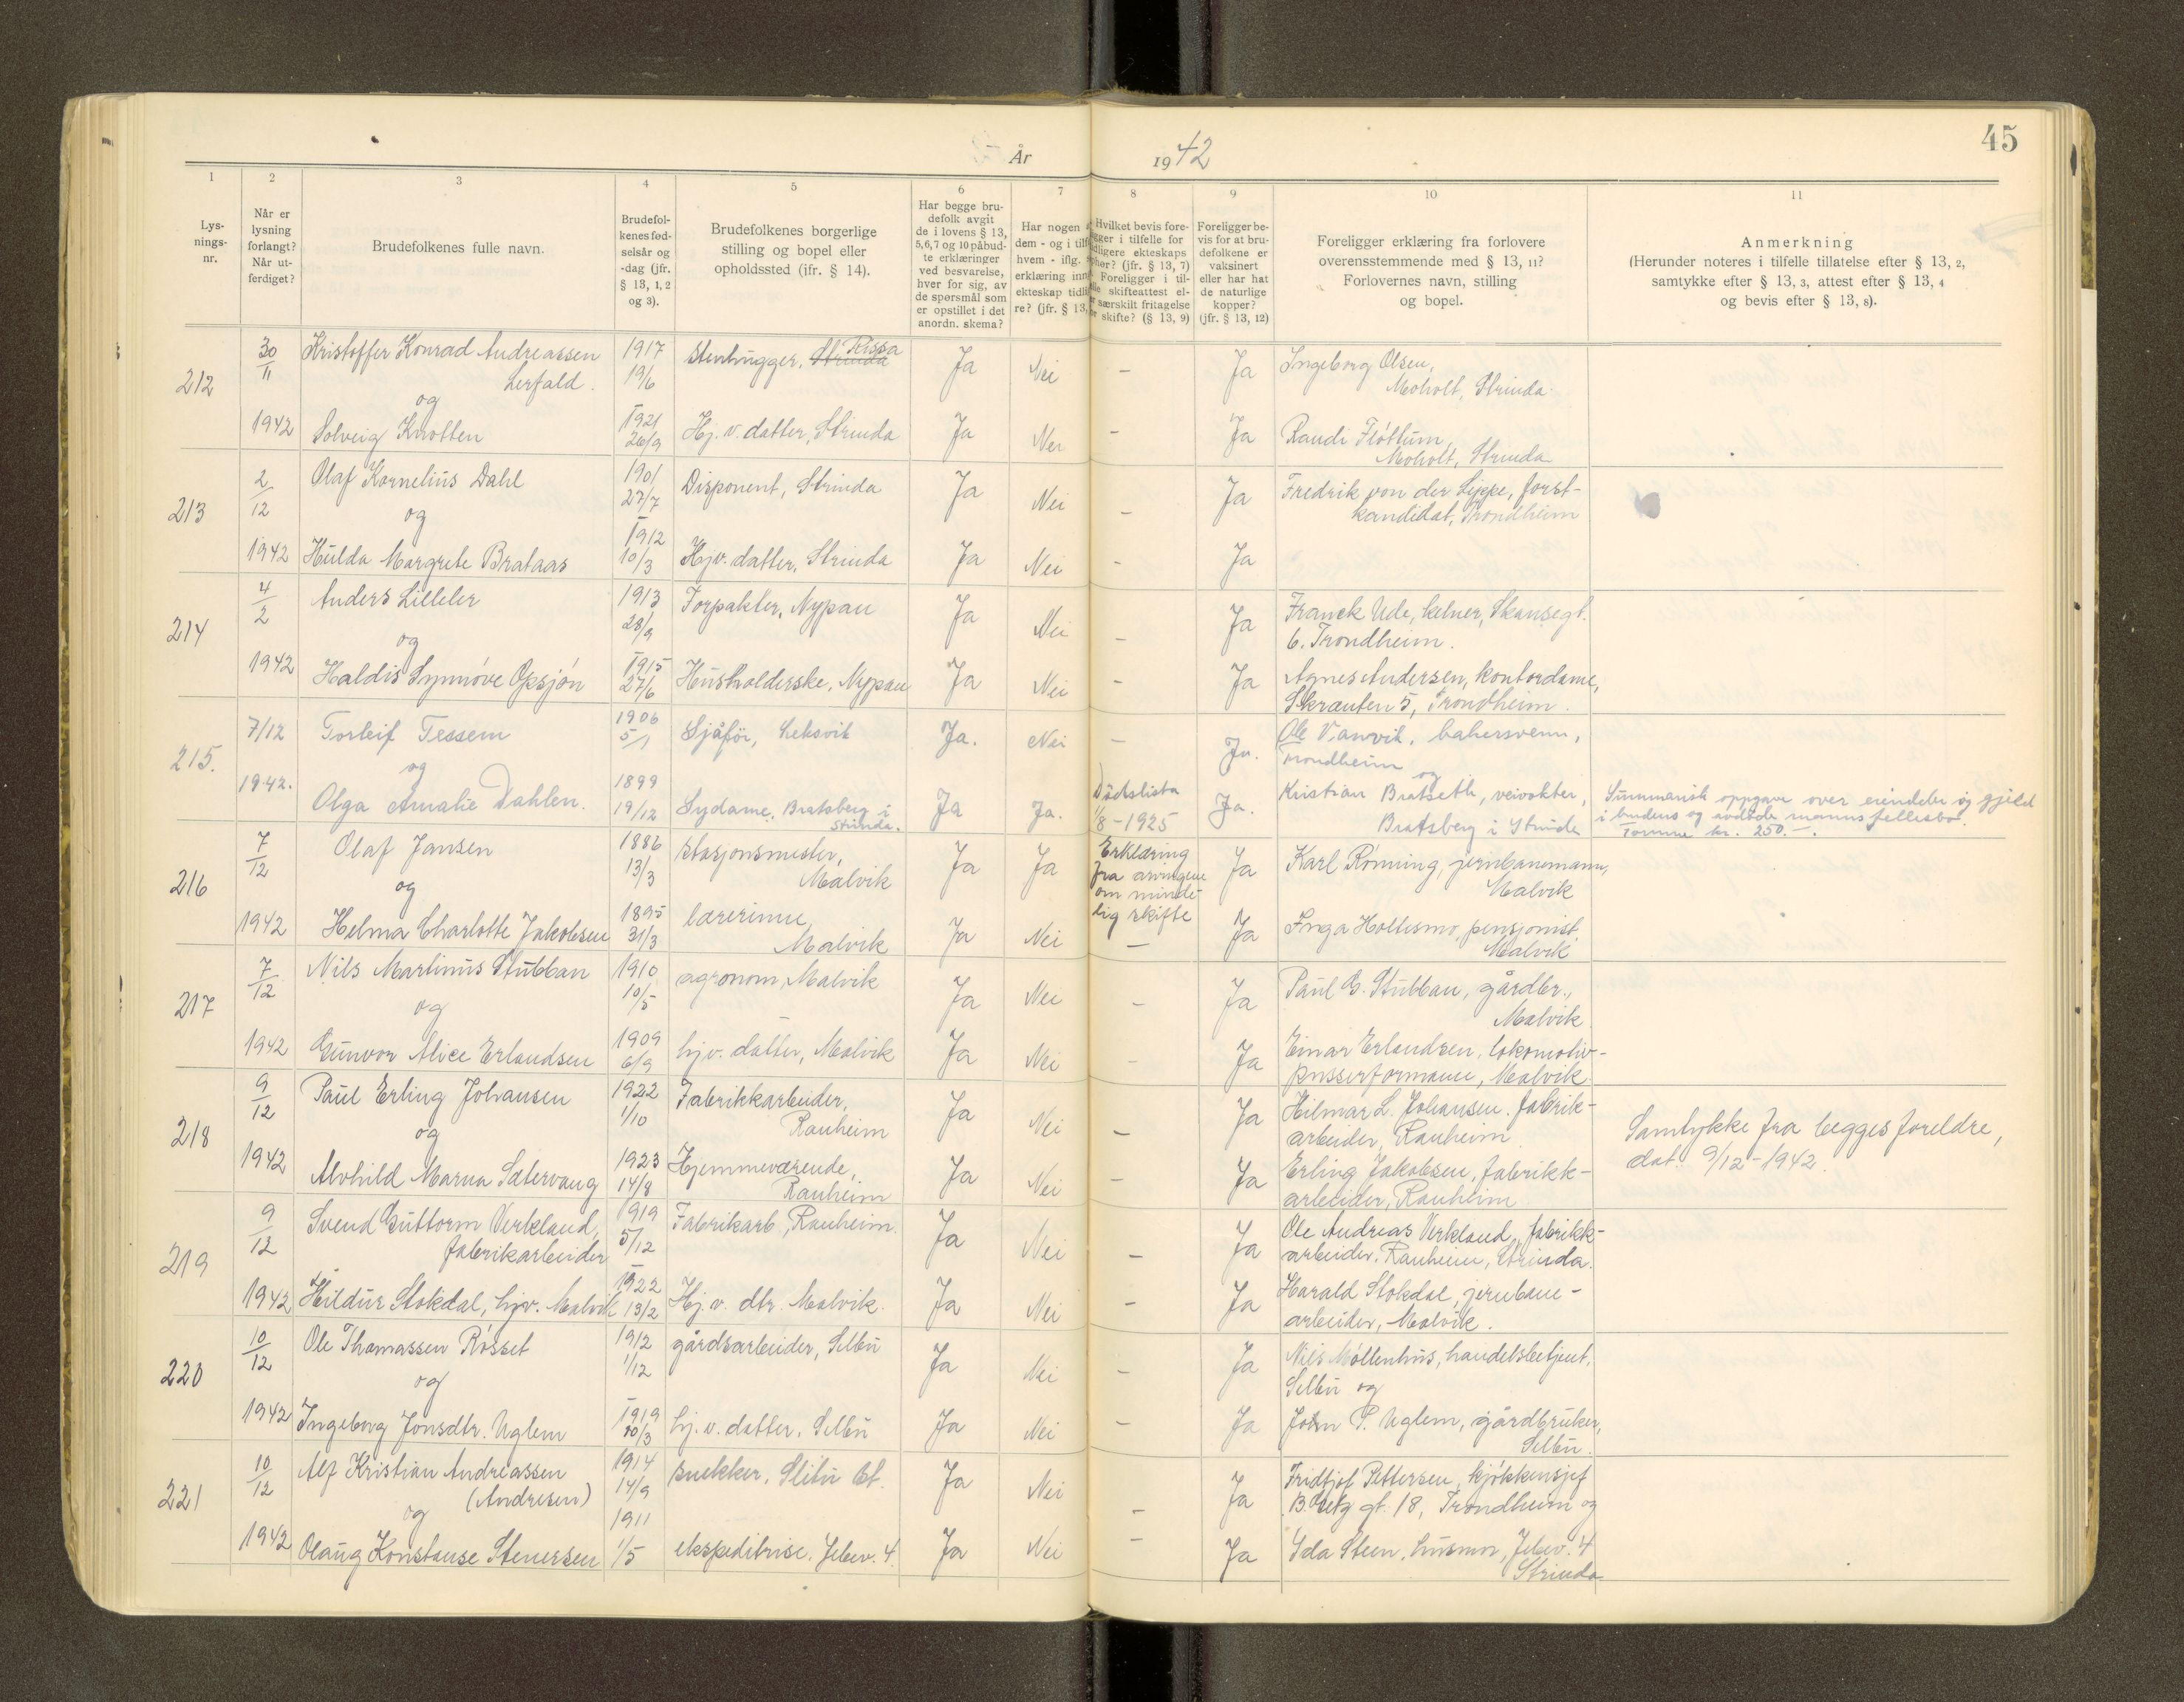 45
År 1942
1
2
3
4
5
6
7
8
9
10
11
Lys-
nings-
nr.
Når er
lysning
forlangt?
Når ut-
ferdiget?
Brudefolkenes fulle navn.
Brudefol-
kenes fød-
selsår og
-dag (jfr.
§ 13, 1, 2
og 3).
Brudefolkenes borgerlige
stilling og bopel eller
opholdssted (ifr. § 14).
Har begge bru-
defolk avgit
de i lovens § 13,
5,6,7 og 10 påbud-
te erklæringer
ved besvarelse,
hver for sig, av
de spørsmål som
er opstillet i det
anordn. skema?
Har nogen
dem - og i tilf
hvem - iflg.
erklæring inng
ekteskap tidli
re? (jfr. § 13,
Hvilket bevis fore-
gger i tilfelle for
dligere ekteskaps
phør? (jfr. § 13, 7)
Foreligger i til-
lle skifteattest el-
r særskilt fritagelse
or skifte? (§ 13, 9)
Foreligger be-
vis for at bru-
defolkene er
vaksinert
eller har hat
de naturlige
kopper?
(jfr. § 13, 12)
Foreligger erklæring fra forlovere
overensstemmende med § 13, 11?
Forlovernes navn, stilling
og bopel.
Anmerkning
(Herunder noteres i tilfelle tillatelse efter § 13, 2,
samtykke efter § 13, 3, attest efter § 13, 4
og bevis efter § 13, 8).
212 30/11 Kristoffer Konrad Andreassen 1917 stenhugger, Strinda Rissa Ja Nei – Ja Ingeborg Olsen,
Lerfald. 19/6 Moholt, Strinda
og
1942 Solveig Knotten 1921 26/9 Hj. v. datter, Strinda Ja Nei – Ja Randi Fløttum,
Moholt, Strinda
213 2/12 Olaf Kornelius Dahl 1901 27/7 Disponent, Strinda Ja Nei – Ja Fredrik von der Lippe, forst-
kandidat, Trondheim
og
1942 Hulda Margrete Brataas 1912 10/3 Hjv. datter, Strinda Ja Nei – Ja
214 4/2 Anders Lilleler 1913 28/9 Forpakter, Nypan Ja Nei – Ja Franck Ude, kelner, Skansegt.
6. Trondheim.
og
1942 Haldis Synnøve Opsjøn 1915 27/6 Husholderske, Nypan Ja Nei – Ja Agnes Andersen, kontordame,
Skrauten 5, Trondheim.
215. 7/12 Torleif Tessem 1906 5/1 Sjåfør, Leksvik Ja. Nei – Ja. Ole Vanvik, bakersvenn,
Trondheim
og og
1942. Olga Amalie Dahlen. 1899 19/12 Sydame, Bratsberg i Strinda. Ja Ja. Dødslista Ja. Kristian Bratseth, veivokter,
1/8 – 1925 Bratsberg i Strinda
Summarisk oppgave over eiendeler og gjeld
i brudens og avdøde manns fellesbo.
Tomme kr. 250.–.
216 7/12 Olaf Jansen 1886 13/3 stasjonsmester, Ja Ja Erklæring Ja Karl Rønning, jernbanemann,
Malvik fra arvingene Malvik
og om minde-
lig skifte
1942 Helma Charlotte Jakobsen 1895 31/3 lærerinne, Ja Nei – Ja Inga Holtesmo, pensjonist
Malvik Malvik
217 7/12 Nils Martinus Stubban 1910 10/5 agronom, Malvik Ja Nei – Ja Paul G. Stubban, gårdbr.,
Malvik
og
1942 Gunvor Alice Erlandsen 1909 6/9 hjv. datter, Malvik Ja Nei – Ja Einar Erlandsen, lokomotiv-
pusserformann, Malvik.
218 9/12 Paul Erling Johansen 1922 1/10 Fabrikkarbeider, Ja Nei – Ja Hilmar L. Johansen. fabrik-
Ranheim arbeider, Ranheim
og
1942 Alvhild Marna Sætervang 1923 14/8 Hjemmeværende, Ja Nei – Ja Erling Jakobsen, fabrikk-
Ranheim arbeider, Ranheim
Samtykke fra begges foreldre,
dat. 9/12-1942.
219 9/12 Svend Guttorm Verkland, 1919 5/12 Fabrikarb., Ranheim. Ja Nei – Ja Ole Andreas Verkland, fabrikk-
fabrikarbeider arbeider, Ranheim, Strinda.
1942 Hildur Stokdal, hjv. Malvik 1922 13/2 Hj. v. dtr. Malvik. Ja Nei – Ja Harald Stokdal, jernbane-
arbeider, Malvik.
220 10/12 Ole Thomassen Røsset 1912 1/12 gårdsarbeider, Selbu Ja Nei – Ja Nils Møllenhus, handelsbetjent,
Selbu og
og
1942 Ingeborg Jonsdtr. Uglem 1919 20/3 hj. v. datter, Selbu Ja Nei – Ja John P. Uglem, gårdbruker,
Selbu.
221 10/12 Alf Kristian Andreassen 1914 14/9 snekker, Ja Nei – Ja Fridtjof Pettersen, kjøkkensjef
(Andresen) gt. 18, Trondheim og
og
1942 Olaug Konstanse Stenersen 1911 1/5 ekspeditrise. Jebev. 4. Ja Nei – Ja Ida Steen, husmor, Jebev. 4
Strinda